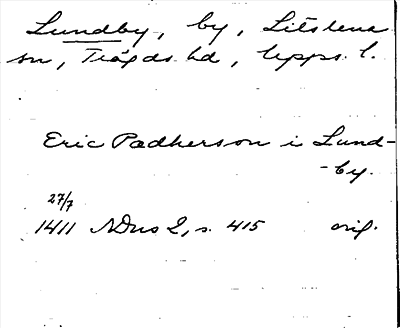 Lundby, by, Litslena
sn, Trögds hd, Upps. l.
Eric Padherson i Lund-
-by.
27/7
1411 NDns 2, s. 415 orig.